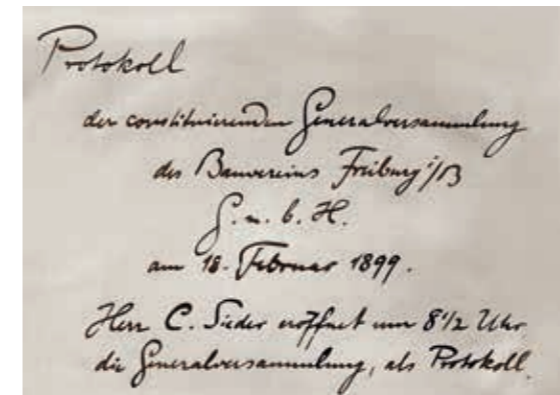 Protokoll
der constituierenden Generalversammlung
des Bauvereins Freiburg i/B
G. m. b. H.
am 18. Februar 1899.
Herr C. Sieder eröffnet um 8 1/2 Uhr
die Generalversammlung, als Protokoll